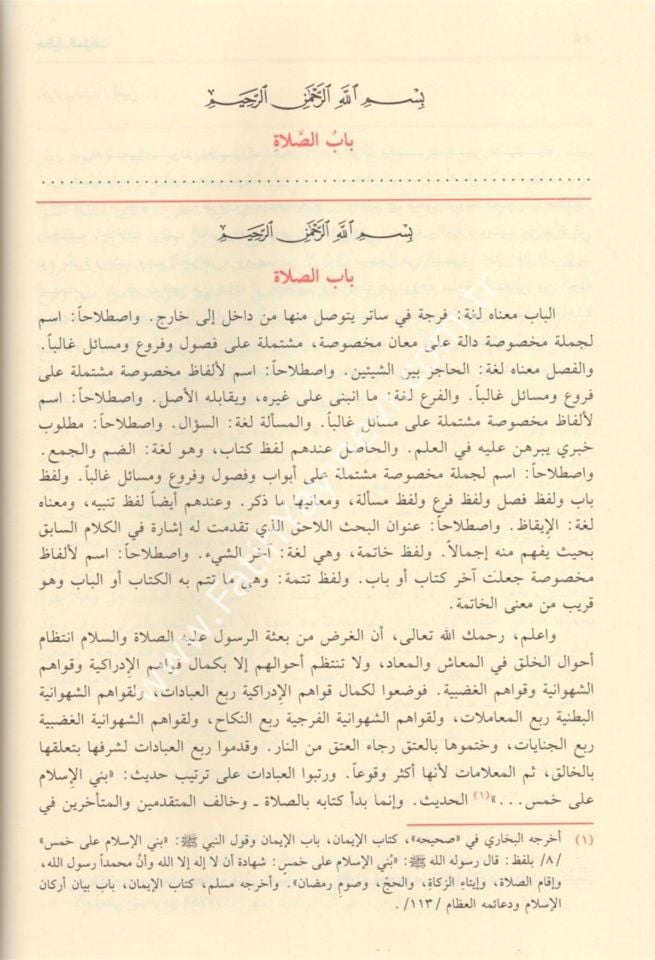 بِسْمِ اللَّهِ الرَّحْمَٰنِ الرَّحِيمِ
بابُ الصَّلاةِ
........................................
بِسْمِ اللَّهِ الرَّحْمَٰنِ الرَّحِيمِ
باب الصلاة
الباب معناه لغة: فرجة في ساتر يتوصل منها من داخل إلى خارج. واصطلاحاً: اسم
لجملة مخصوصة دالة على معان مخصوصة، مشتملة على فصول وفروع ومسائل غالباً.
والفصل معناه لغة: الحاجز بين الشيئين. واصطلاحاً: اسم لألفاظ مخصوصة مشتملة على
فروع ومسائل غالباً. والفرع لغة: ما انبنى على غيره، ويقابله الأصل. واصطلاحاً: اسم
لألفاظ مخصوصة مشتملة على مسائل غالباً. والمسألة لغة: السؤال. واصطلاحاً: مطلوب
خبري يبرهن عليه في العلم. والحاصل عندهم لفظ كتاب، وهو لغة: الضم والجمع.
واصطلاحاً: اسم لجملة مخصوصة مشتملة على أبواب وفصول وفروع ومسائل غالباً. ولفظ
باب ولفظ فصل ولفظ فرع ولفظ مسألة، ومعانيها ما ذكر. وعندهم أيضاً لفظ تنبيه، ومعناه
لغة: الإيقاظ. واصطلاحاً: عنوان البحث اللاحق الذي تقدمت له إشارة في الكلام السابق
بحيث يفهم منه إجمالاً. ولفظ خاتمة، وهي لغة: آخر الشيء. واصطلاحاً: اسم لألفاظ
مخصوصة جعلت آخر كتاب أو باب. ولفظ تتمة: وهي ما تتم به الكتاب أو الباب وهو
قريب من معنى الخاتمة.
واعلم، رحمك الله تعالى، أن الغرض من بعثة الرسول عليه الصلاة والسلام انتظام
أحوال الخلق في المعاش والمعاد، ولا تنتظم أحوالهم إلا بكمال قواهم الإدراكية وقواهم
الشهوانية وقواهم الغضبية. فوضعوا لكمال قواهم الإدراكية ربع العبادات، ولقواهم الشهوانية
البطنية ربع المعاملات، ولقواهم الشهوانية الفرجية ربع النكاح، ولقواهم الشهوانية الغضبية
ربع الجنايات، وختموها بالعتق رجاء العتق من النار. وقدموا ربع العبادات لشرفها بتعلقها
بالخالق، ثم المعلامات لأنها أكثر وقوعاً. ورتبوا العبادات على ترتيب حديث: «بني الإسلام
على خمس...»(١) الحديث. وإنما بدأ كتابه بالصلاة ـ وخالف المتقدمين والمتأخرين في
(١) أخرجه البخاري في «صحيحه»، كتاب الإيمان، باب الإيمان وقول النبي ﷺ: «بني الإسلام على خمس»
/٨/ بلفظ: قال رسوله الله ﷺ: «بُني الإسلام على خمسٍ: شهادة أن لا إله إلا الله وأنَّ محمداً رسول الله،
وإقام الصلاة، وإيتاء الزكاة، والحجّ، وصوم رمضان». وأخرجه مسلم، كتاب الإيمان، باب بيان أركان
الإسلام ودعائمه العظام /١١٣/.